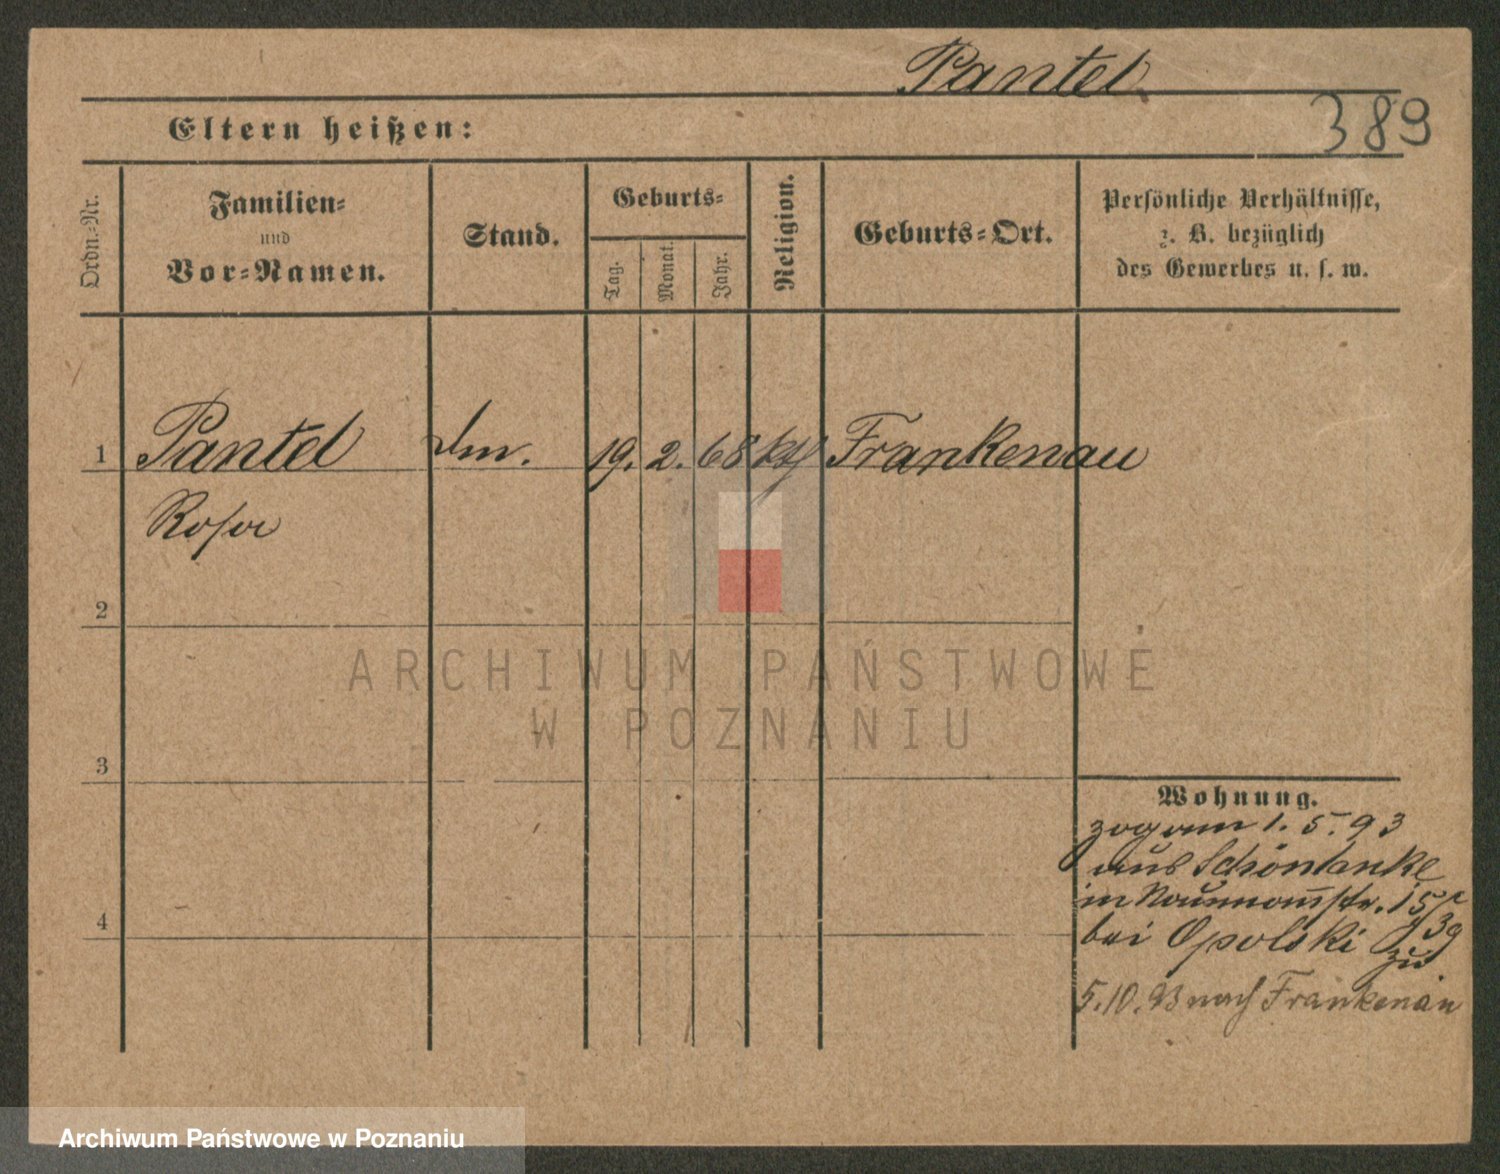 Pantel
389
Eltern heißen:
Ordn.-Nr.
Familien-
und
Vor-Namen.
Stand.
Geburts-
Tag.
Monat.
Jahr.
Religion.
Geburts-Ort.
Persönliche Verhältnisse,
z. B. bezüglich
des Gewerbes u. s. w.
1 Pantel 19. 2. 68 kth Frankenau
Rosa
2
3
4
Wohnung.
zog am 1. 5. 93
aus Schönlanke
in Naumannstr. 15
bei Opolski zu
5. 10. 93 nach Frankenau
ARCHIWUM PAŃSTWOWE
W POZNANIU
Archiwum Państwowe w Poznaniu